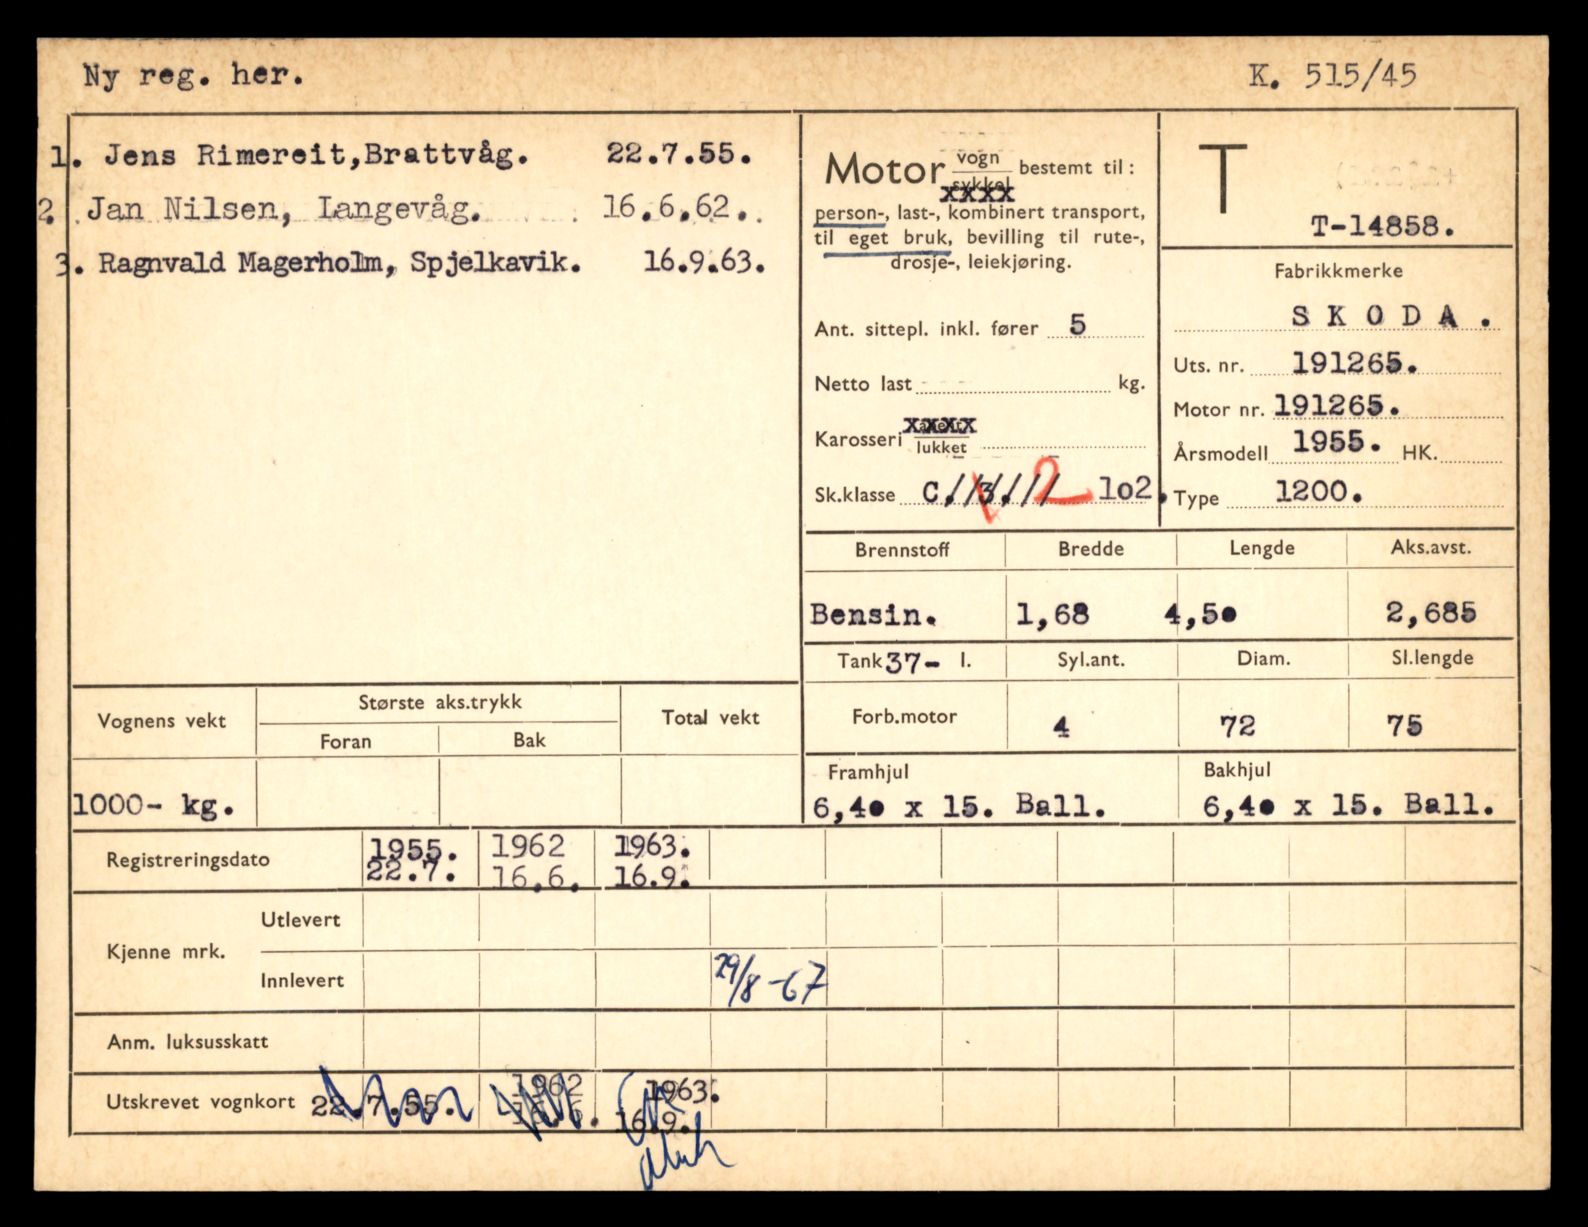 Ny reg. her.
K. 515/45
1. Jens Rimereit,Brattvåg. 22.7.55.
2. Jan Nilsen, Langevåg. 16.6.62.
3. Ragnvald Magerholm, Spjelkavik. 16.9.63.
Motor vogn bestemt til:
sykkel xxxx
person-, last-, kombinert transport,
til eget bruk, bevilling til rute-,
drosje-, leiekjøring.
Ant. sittepl. inkl. fører 5
Netto last kg.
Karosseri xxxx
lukket
Sk.klasse C./ 3./ // 2 1o2.
T
T-14858.
Fabrikkmerke
S K O D A .
Uts. nr. 191265.
Motor nr. 191265.
Årsmodell 1955. HK.
Type 1200.
Brennstoff Bredde Lengde Aks.avst.
Bensin. 1,68 4,50 2,685
Tank 37- l. Syl.ant. Diam. Sl.lengde
Forb.motor 4 72 75
Framhjul Bakhjul
6,40 x 15. Ball. 6,40 x 15. Ball.
Vognens vekt Største aks.trykk Total vekt
Foran Bak
1000- kg.
Registreringsdato 1955. 1962 1963.
22.7. 16.6. 16.9.
Kjenne mrk. Utlevert
Innlevert 29/8-67
Anm. luksusskatt
Utskrevet vognkort 22.7.55. 1962 1963.
16.6. 16.9.